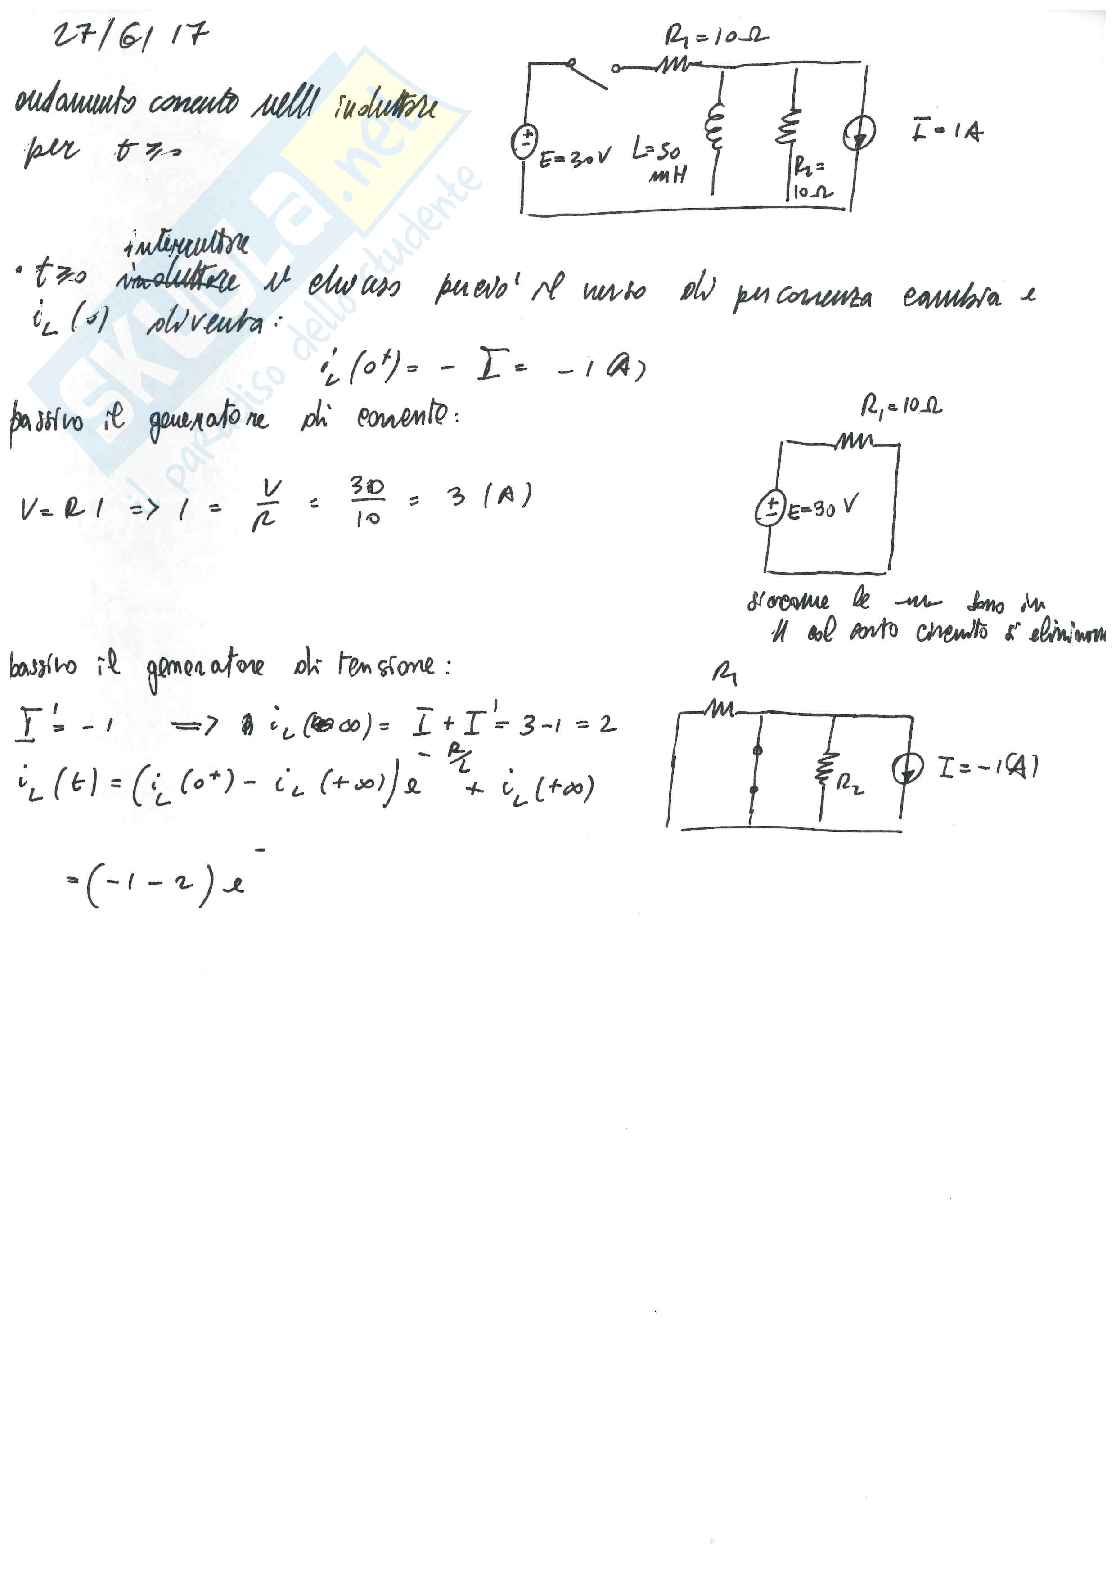 27/6/17
R₁=10Ω
andamento corrente nell induttore
per t≥0
E=30V
L=50
mH
R₂=
10Ω
I=1A
interruttore
• t≥0 induttore è chiuso perciò il verso di percorrenza cambia e
i_L(0) diventa:
i_L(0⁺)= - I = -1(A)
passivo il generatore di corrente:
R₁=10Ω
V=RI => I = V/R = 30/10 = 3 (A)
E=30V
siccome le sono in
// col corto circuito si eliminano
passivo il generatore di tensione:
R₁
I'=-1 => i_L(∞)= I+I'=3-1=2
i_L(t)=(i_L(0⁺)- i_L(+∞))e^-R/L + i_L(+∞)
R₂
I=-1(A)
=(-1-2)e^-
SKUOLA.net
il paradiso dello studente